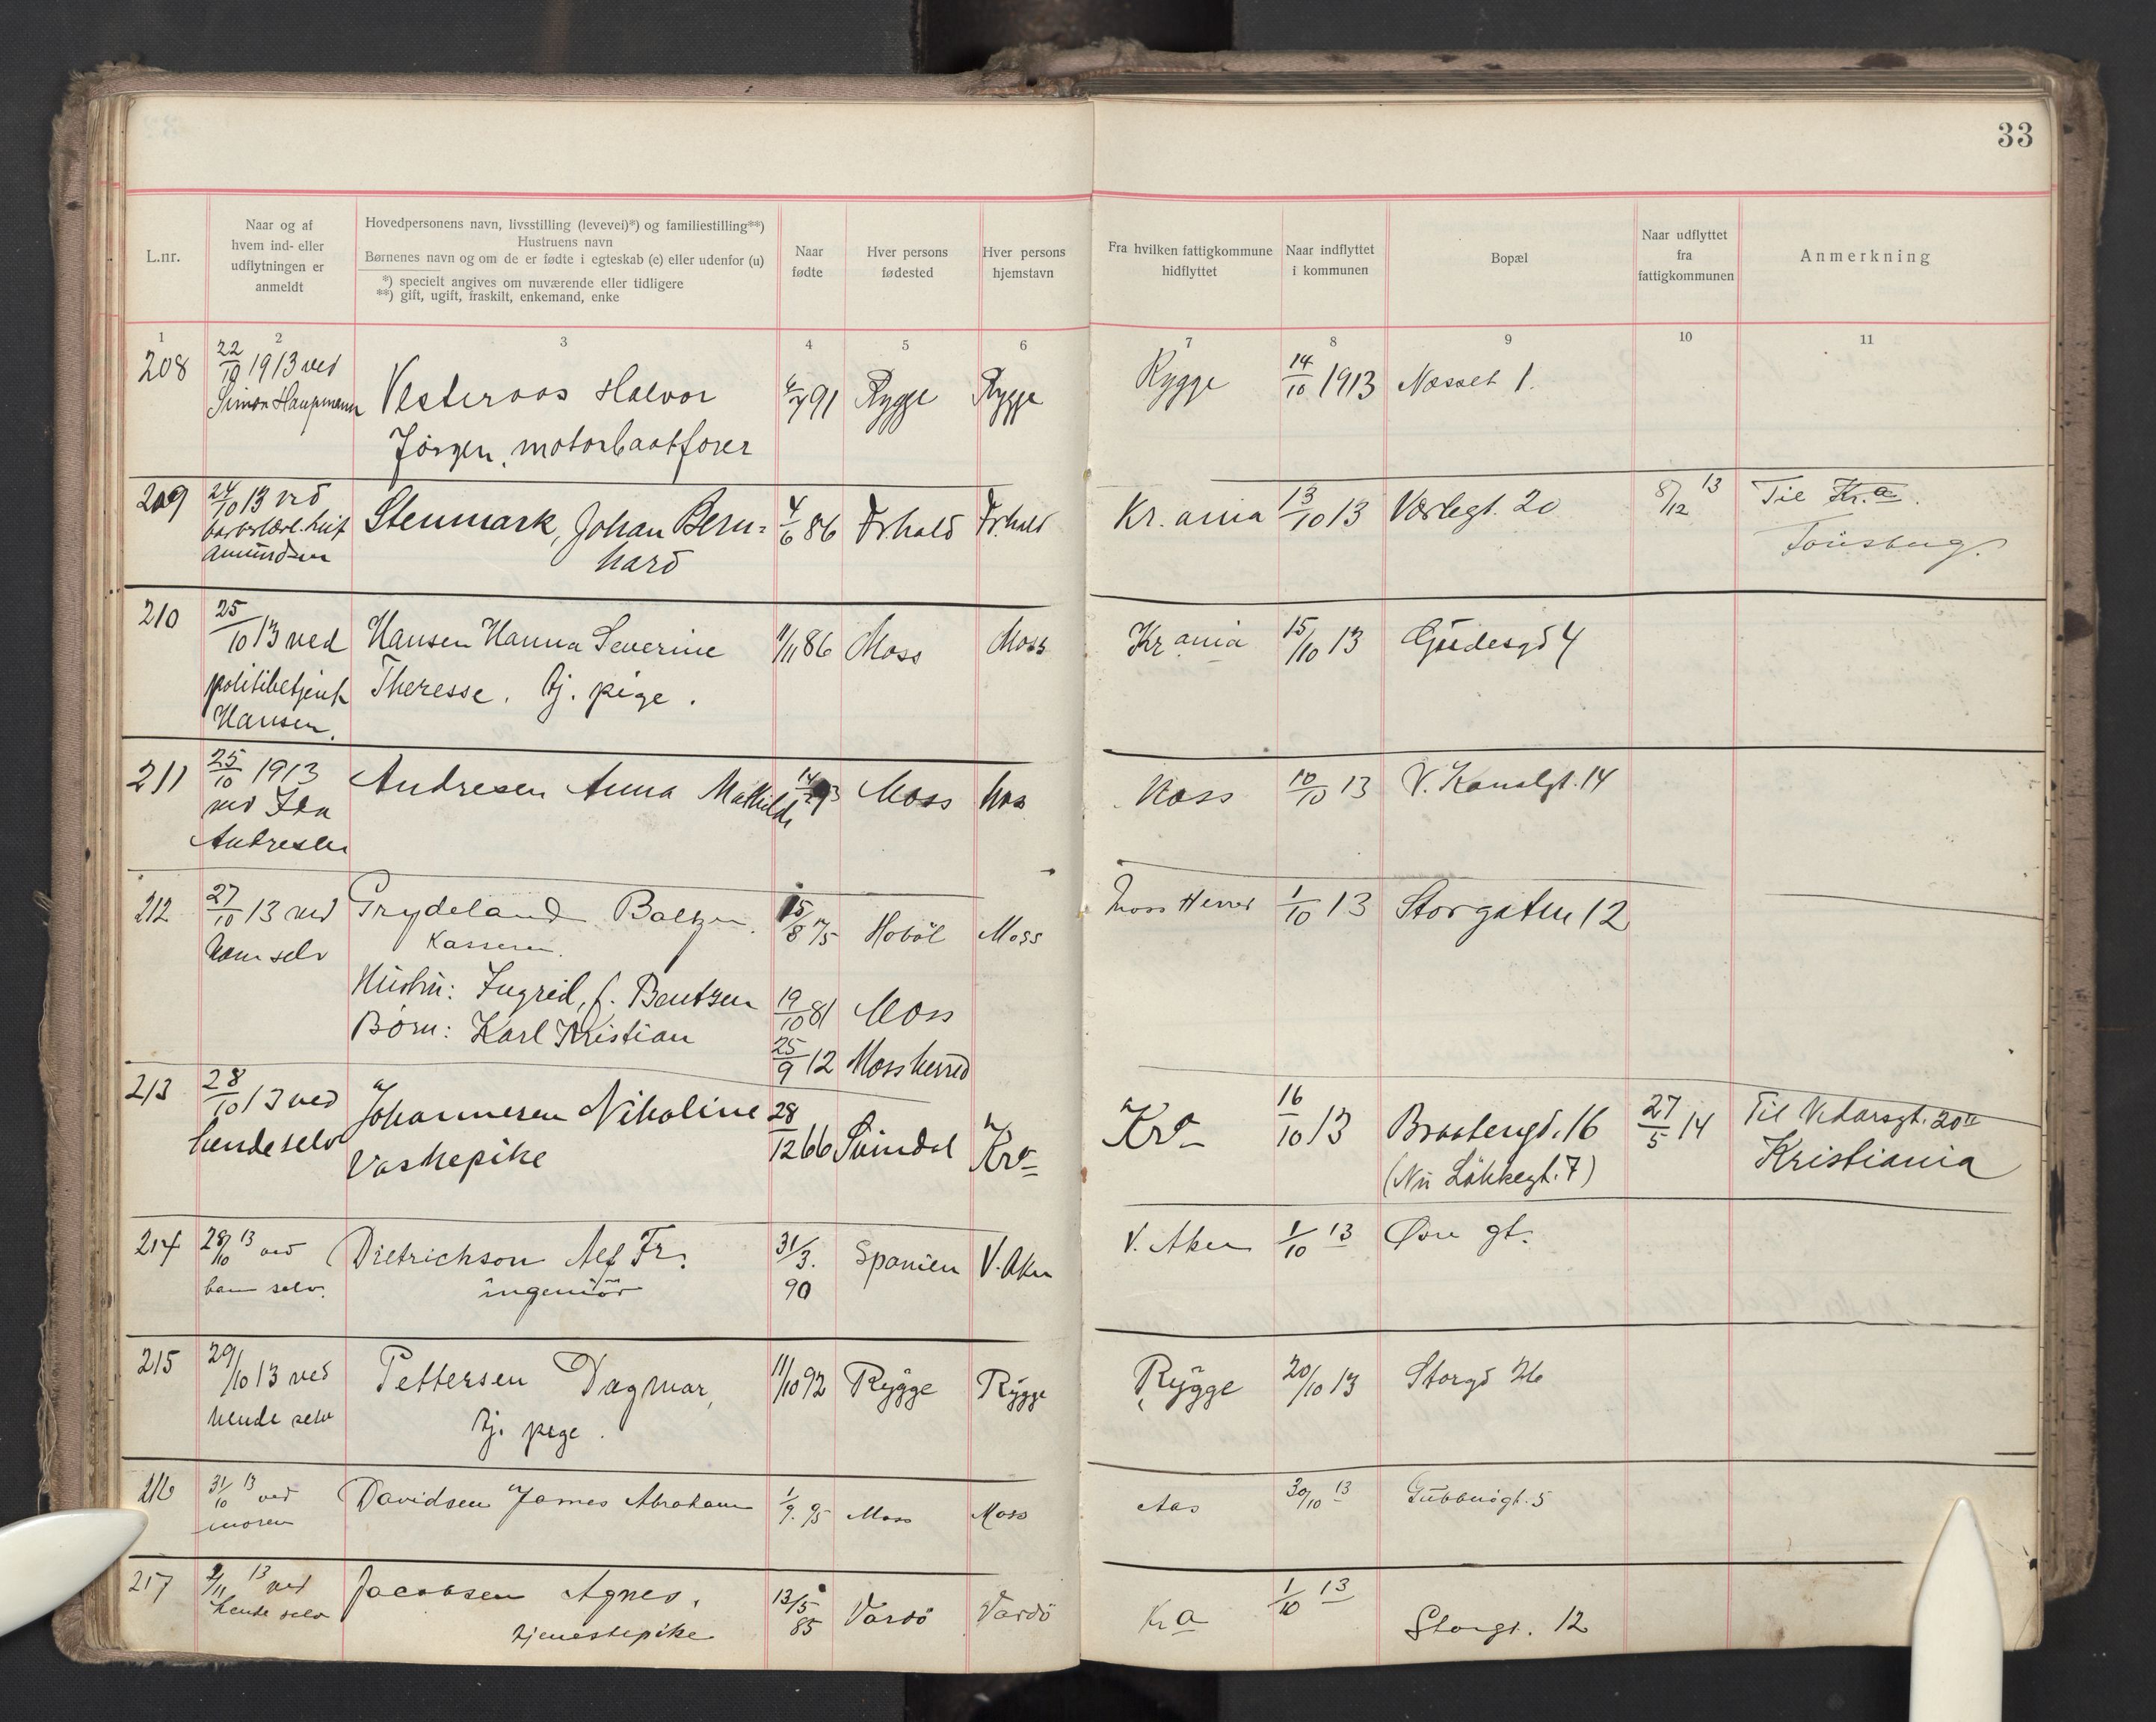 33
L.nr.
Naar og af
hvem ind- eller
udflytningen er
anmeldt
Hovedpersonens navn, livsstilling (levevei)*) og familiestilling**)
Hustruens navn
Børnenes navn og om de er fødte i egteskab (e) eller udenfor (u)
*) specielt angives om nuværende eller tidligere
**) gift, ugift, fraskilt, enkemand, enke
Naar
fødte
Hver persons
fødested
Hver persons
hjemstavn
Fra hvilken fattigkommune
hidflyttet
Naar indflyttet
i kommunen
Bopæl
Naar udflyttet
fra
fattigkommunen
Anmerkning
1 2 3 4 5 6 7 8 9 10 11
208 22/10 1913 ved Vesteraas Halvor 91 Rygge Rygge Rygge 14/10 1913 Næsset 1.
Simon
Jörgen, motorbaatförer
209 24/10 13 ved Stenmark, Johan Bern= 4/6 86 Fr.hald Fr.hald Kr.ania 13/10 13 Varlegt. 20 8/12 13 Til Kr.a.
Amundsen hard Tönsberg.
210 25/10 13 ved Hansen Hanna Severine 86 Moss Moss Kr ania 15/10 13 4
politibetjent Theresse. tj. pige.
Hansen.
211 25/10 1913 Andresen Anna Mathilde Moss Moss Moss 10/10 13 V. Kanalgt. 14
ved
Andresen
212 27/10 13 ved Grydeland 15/8 75 Hobøl Moss Moss Herred 1/10 13 Storgaten 12
ham selv Kasserer.
Hustru: Ingrid, f. Bentzen 19/10 81 Moss
Börn: Karl Kristian 25/9 12 Moss herred
213 28/10 13 ved Johannesen Nikoline 28/12 66 Svindal Kra Kra 16/10 13 Braatengd. 16 27/5 14 Til Vidarsgt. 20
hende selv Vaskepike (Nu Lökkegt. 7) Kristiania
214 28/10 13 ved Dietrichson Alf Fr. 31/3. 90 Spanien V. Aker V. Aker 1/10 13 Øvre gt.
ham selv. ingeniör
215 29/10 13 ved Pettersen Dagmar, 11/10 92 Rygge Rygge Rygge 20/10 13 Storgd 26
hende selv tj. pige.
216 31/10 13 ved Davidsen James Abraham 1/9. 95 Moss Moss Aas 30/10 13 Gudbrandgt. 5
moren
217 13 ved Jacobsen Agnes, 13/5 85 Vardö Vardö Kra 1/10 13 Storgt. 12
hende selv tjenestepike